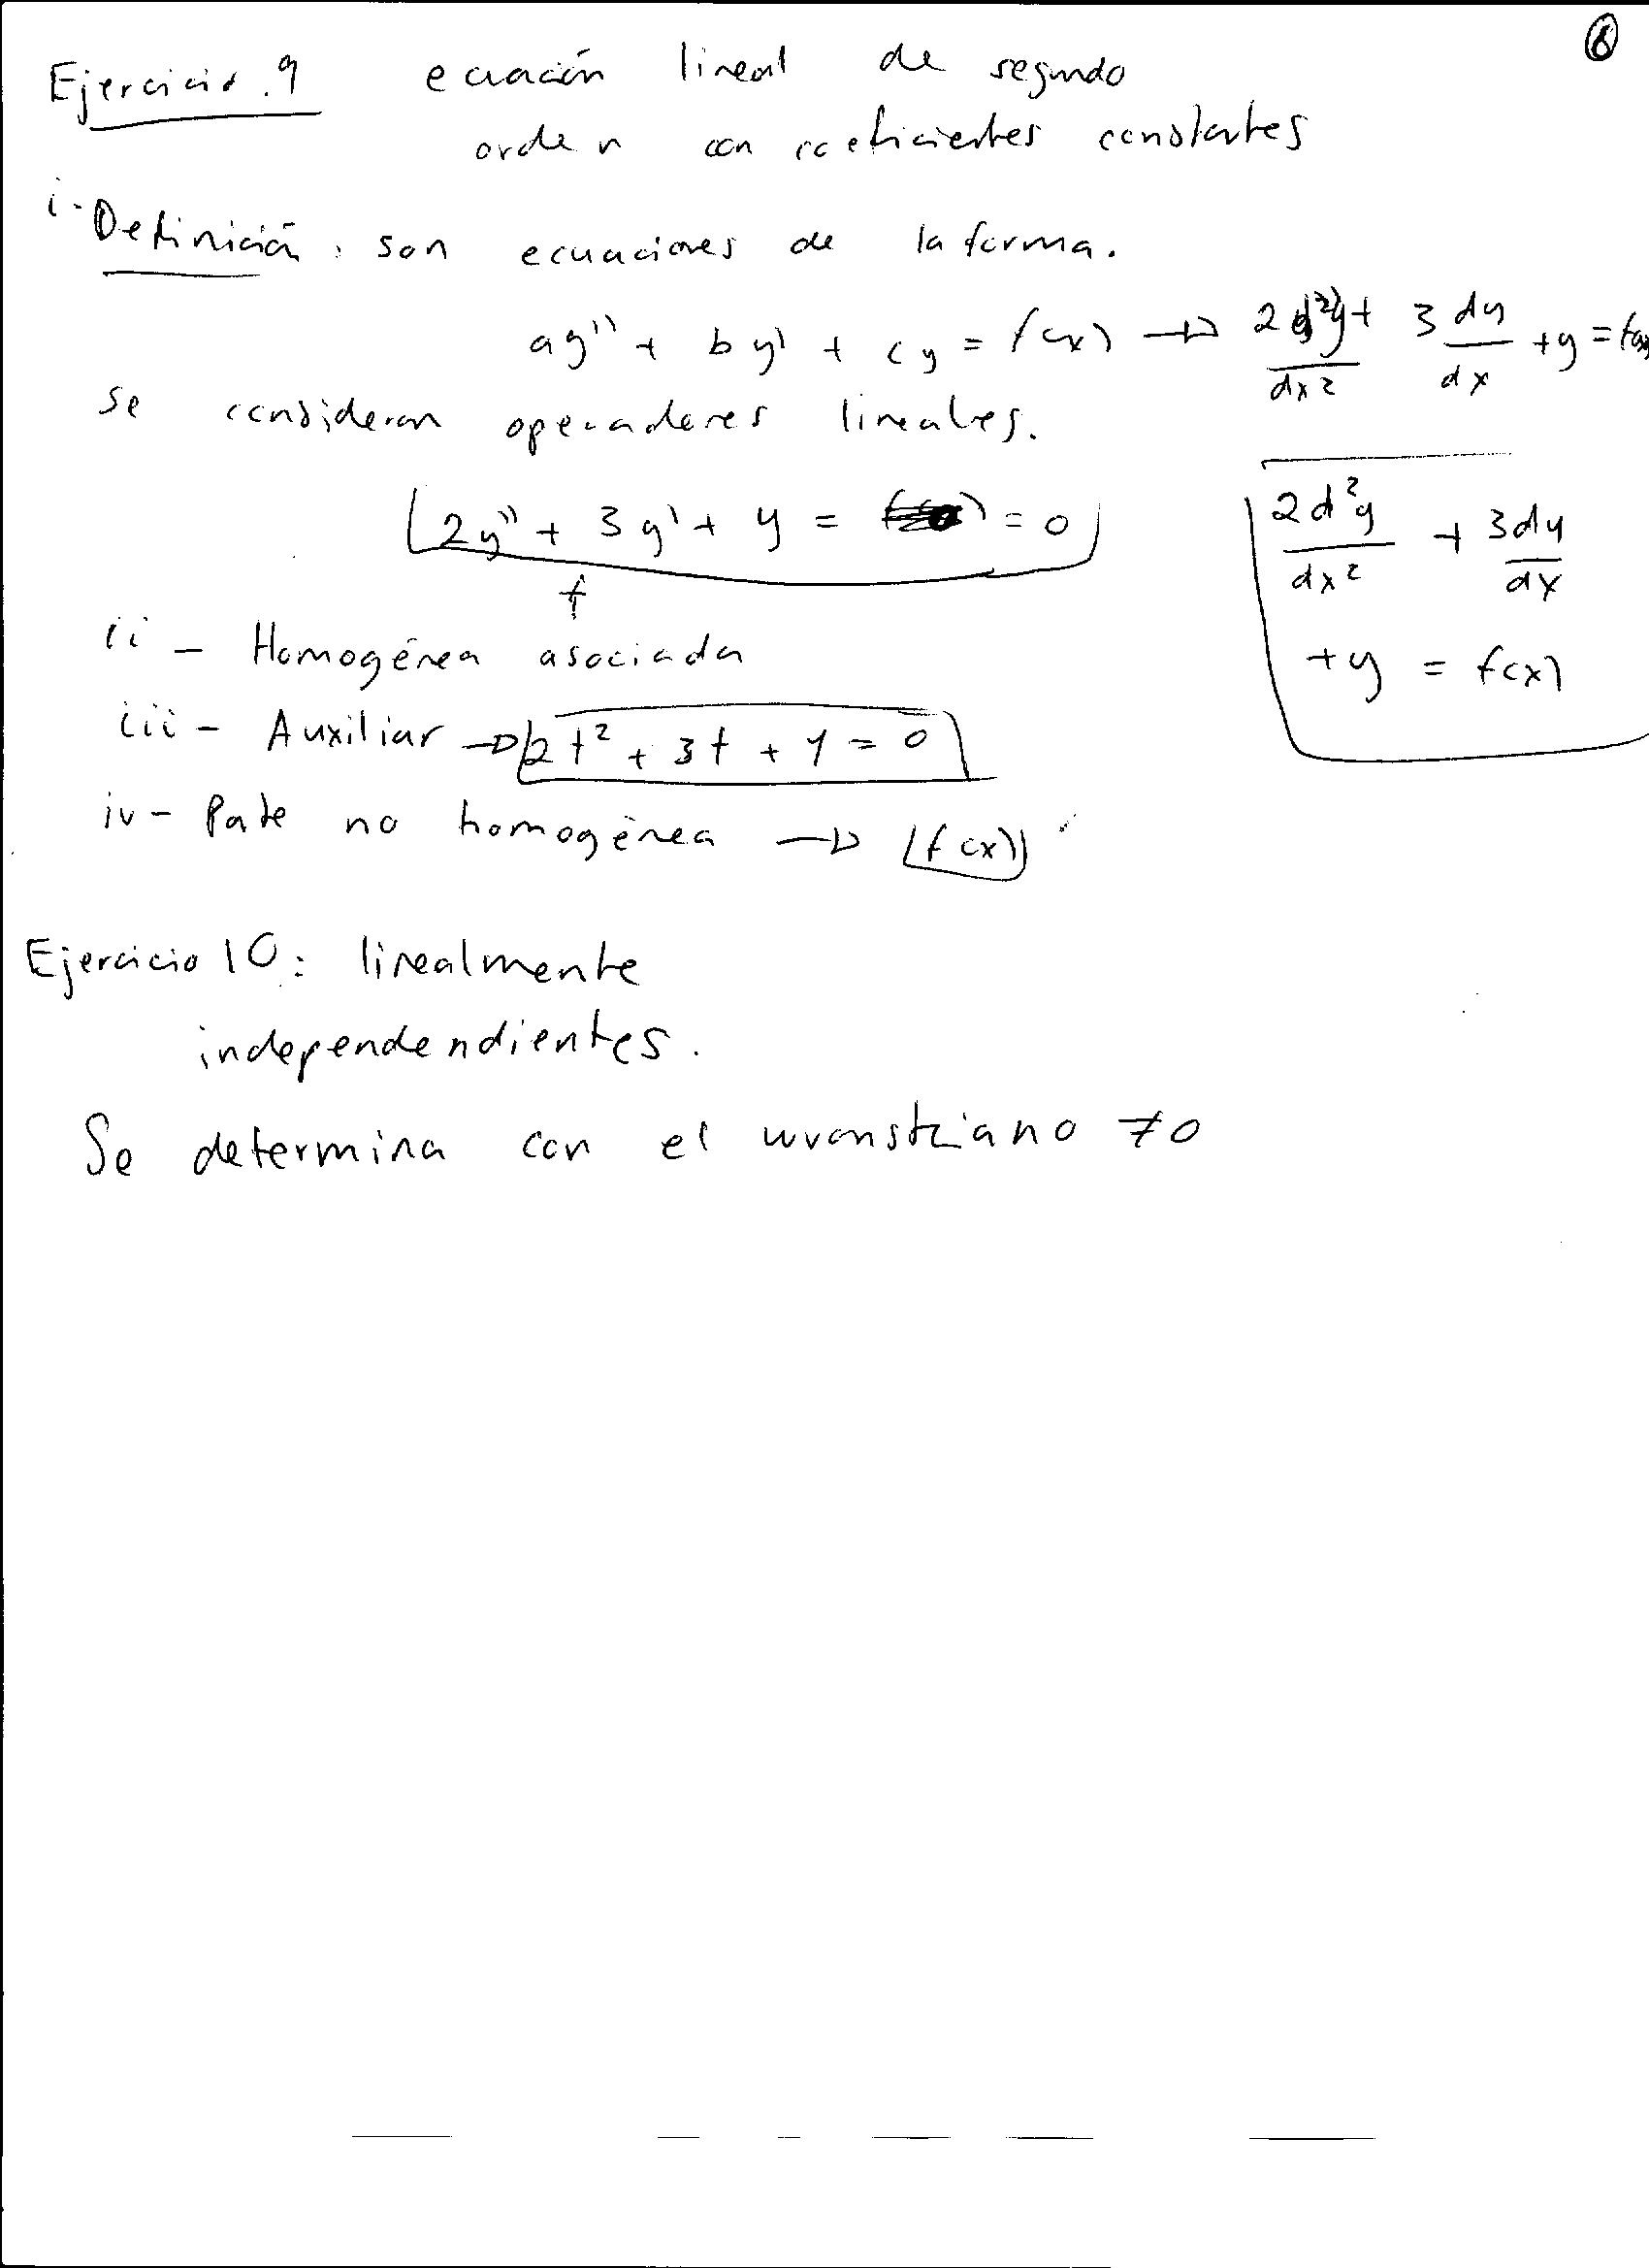 6
Ejercicio.9 ecuación lineal de segundo
orden con coeficientes constantes
i- Definición: son ecuaciones de la forma.
ay'' + by' + cy = f(x) → 2d²y/dx² + 3dy/dx + y = f(x)
se consideran operadores lineales.
2y'' + 3y' + y = = 0
2d²y/dx² + 3dy/dx
+y = f(x)
ii - Homogénea asociada
iii - Auxiliar → 2t² + 3t + 1 = 0
iv - Parte no homogénea → f(x)
Ejercicio 10: linealmente
independendientes.
Se determina con el wronskiano ≠0